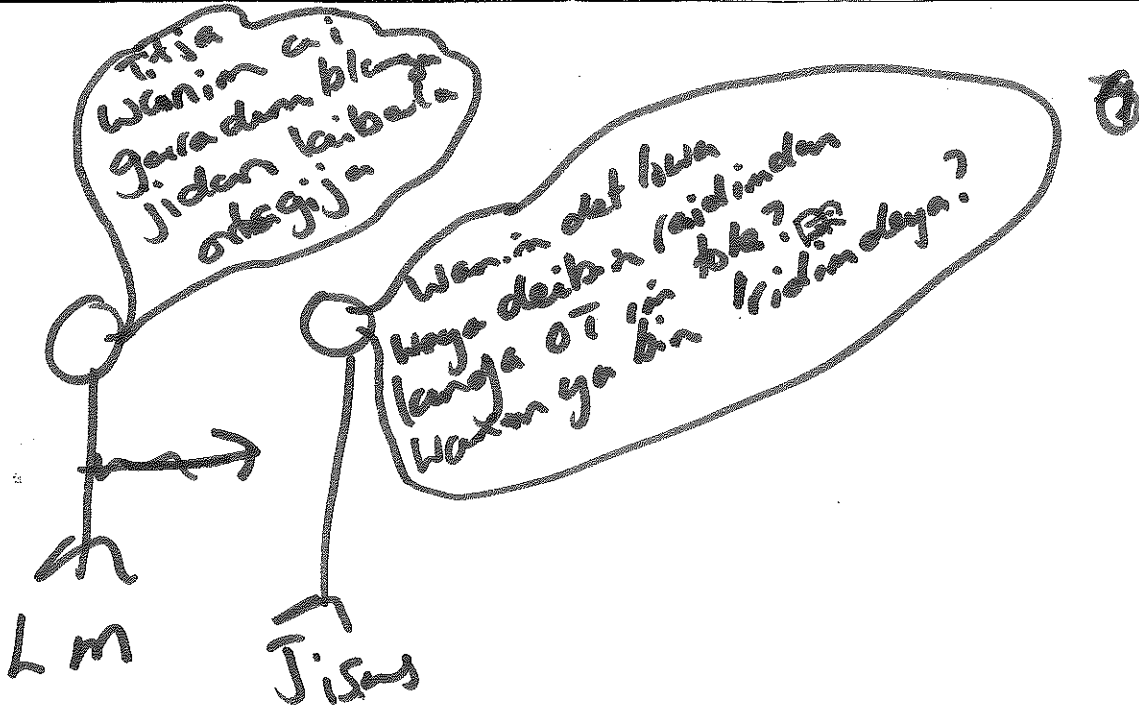 Titja
wanim ai
garadum blanga
jidan laibala
olagija
Wanim det lowa
waya deibin raidimdan
langa OT im toke?
Waton ya bin ridimdeya?
L M
Jisus